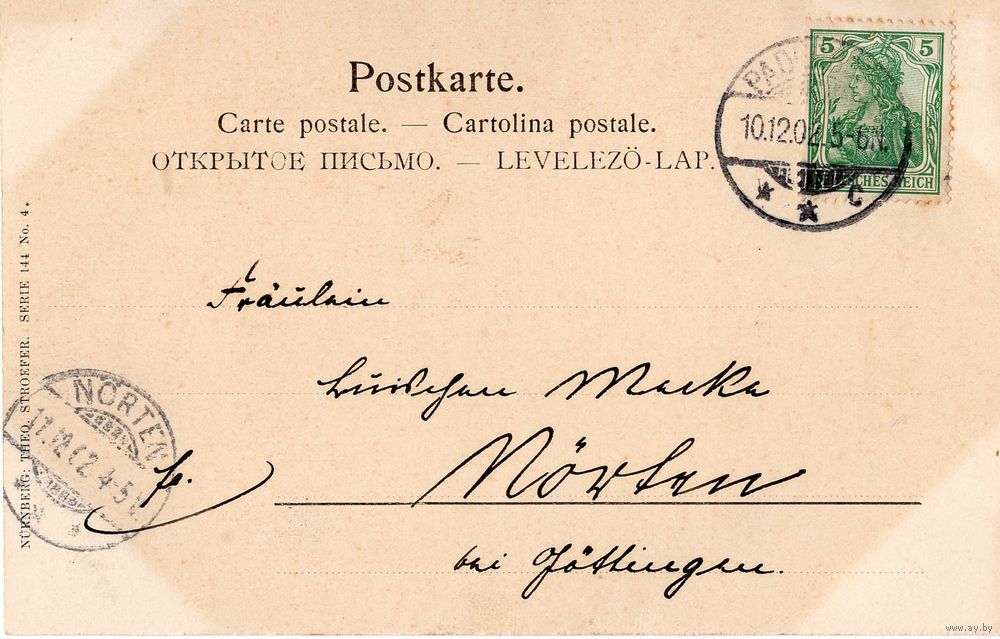 Postkarte.
Carte postale. — Cartolina postale.
ОТКРЫТОЕ ПИСЬМО. — LEVELEZŐ-LAP.
5 5
DEUTSCHES REICH
10.12.02. 5-6N.
* * C
Fräulein
Luischen Macke
Nörten
bei Göttingen.
fr.
NÖRTEN
11.12.02. 4-5
NÜRNBERG: THEO. STROEFER. SERIE 144 No. 4.
www.ay.by